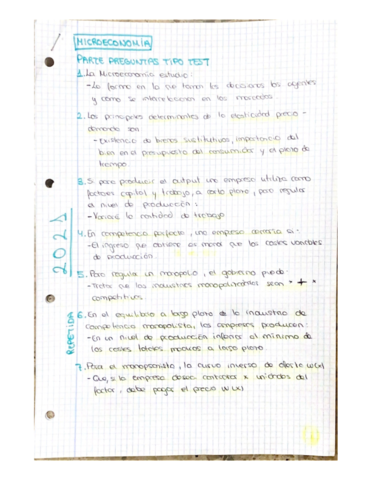 MICROECONOMÍA
PARTE PREGUNTAS TIPO TEST
1. La Microeconomía estudia:
- La forma en la que toman las decisiones los agentes
y como se interrelacionan en los mercados.
2. Los principales determinantes de la elasticidad precio-
demanda son:
- Existencia de bienes sustitutivos, importancia del
bien en el presupuesto del consumidor y el plazo de
tiempo.
3. Si para producir el output una empresa utiliza como
factores capital y trabajo, a corto plazo, para regular
el nivel de producción:
- Variará la cantidad de trabajo.
4. En competencia perfecta, una empresa cerraría si:
- El ingreso que obtiene es menor que los costes variables
de producción.
5. Para regular un monopolio, el gobierno puede:
- Tratar que las industrias monopolizadas sean "+"
competitivas.
6. En el equilibrio a largo plazo de la industria de
competencia monopolista, las empresas producen:
- En un nivel de producción inferior al mínimo de
los costes totales medios a largo plazo.
7. Para el monopsonista, la curva inversa de oferta W(x)
- Que, si la empresa desea contratar x unidades del
factor, debe pagar el precio W(x)
2021
REPETIDA